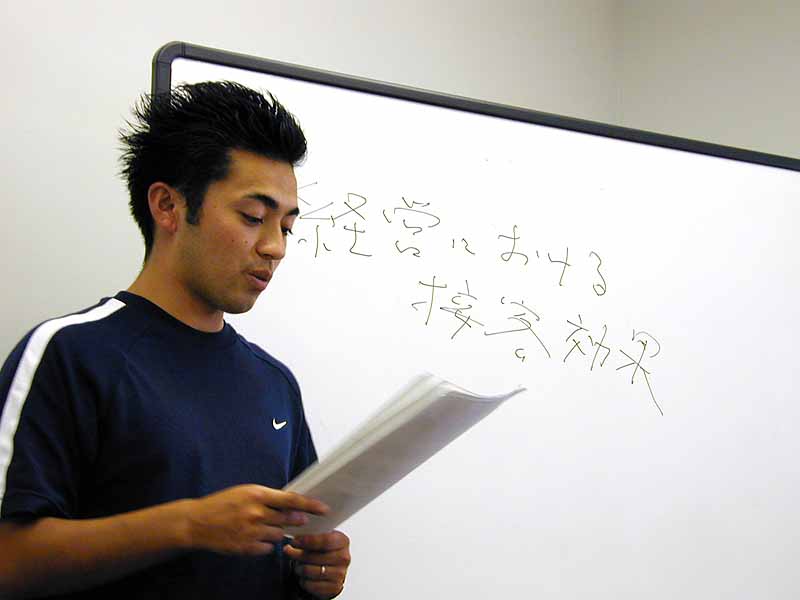 経営における
接客効果